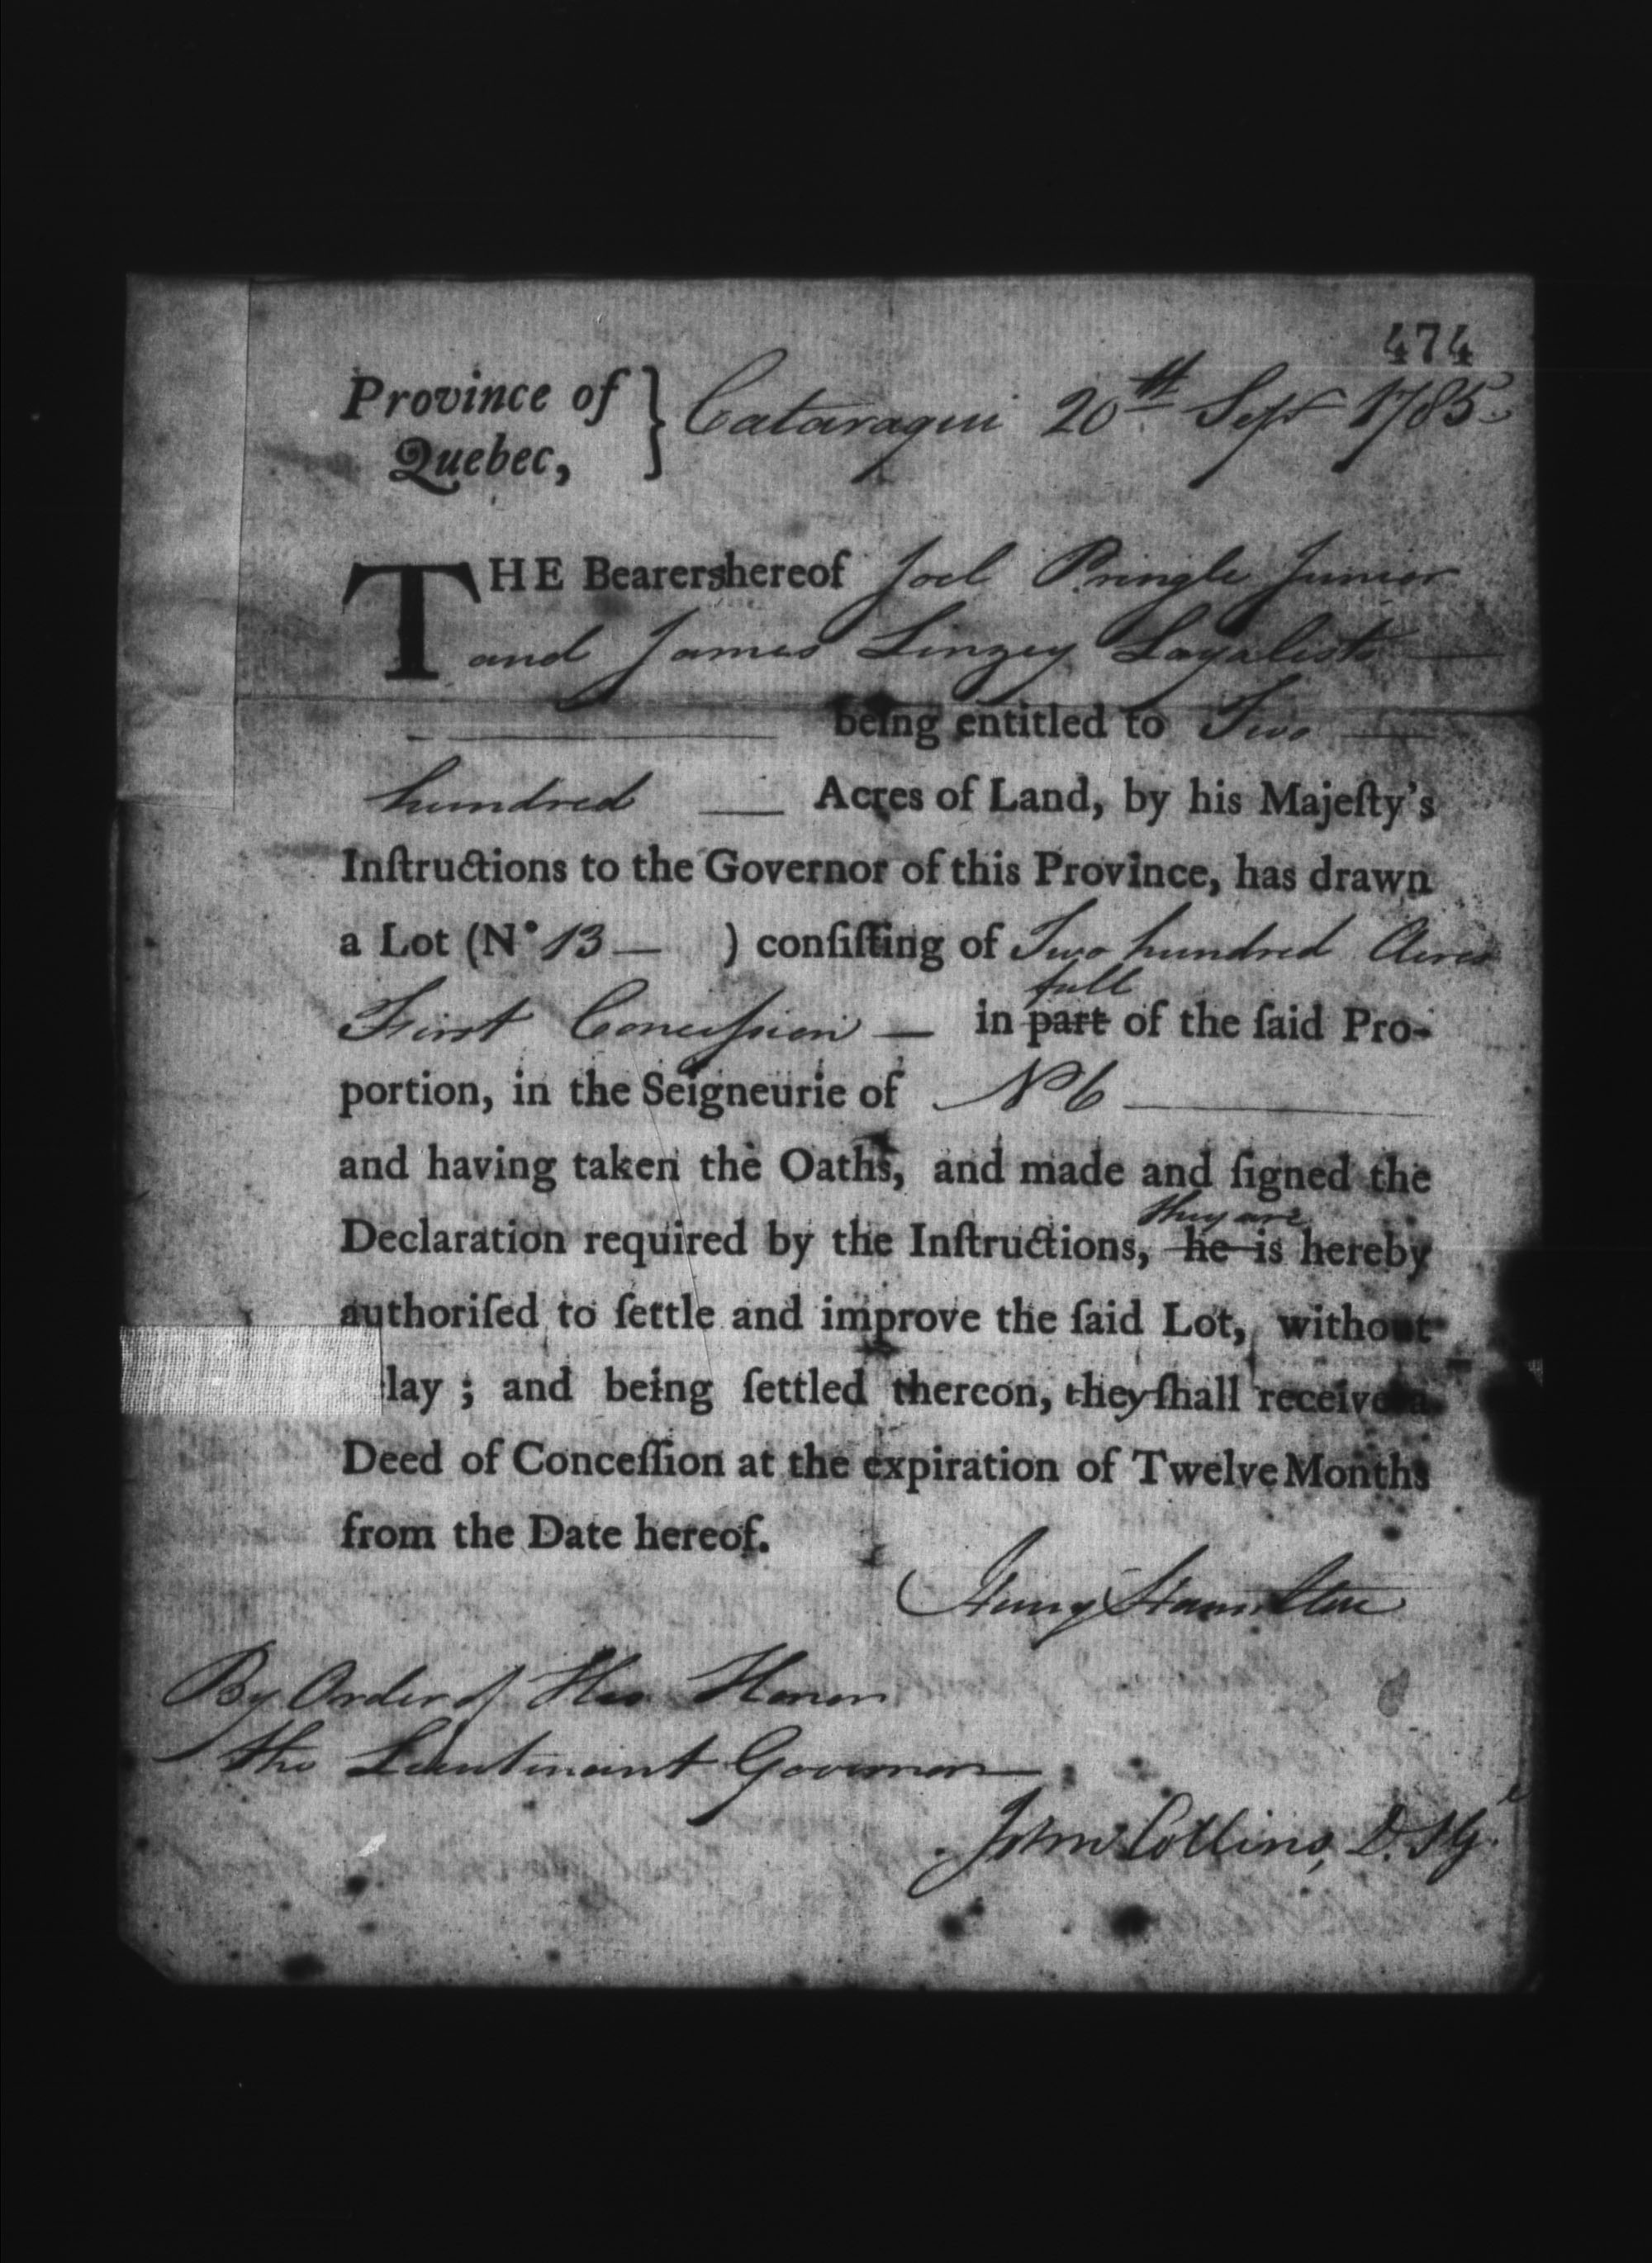 474
Province of } Cataraqui 20th Sept 1785
Quebec,
THE Bearers hereof Joel Pringle Junior
and James Linzey Loyalists —
being entitled to Two —
hundred — Acres of Land, by his Majeſty's
Inſtructions to the Governor of this Province, has drawn
a Lot (N° 13 — ) conſiſting of Two hundred Acres
full
First Concession — in part of the ſaid Pro-
portion, in the Seigneurie of N° 6
and having taken the Oaths, and made and ſigned the
they are
Declaration required by the Inſtructions, he is hereby
authoriſed to ſettle and improve the ſaid Lot, without
lay ; and being ſettled thereon, they ſhall receive a
Deed of Conceſſion at the expiration of Twelve Months
from the Date hereof.
Henry Hamilton
By Order of His Honor
the Lieutenant Governor
John Collins, D.